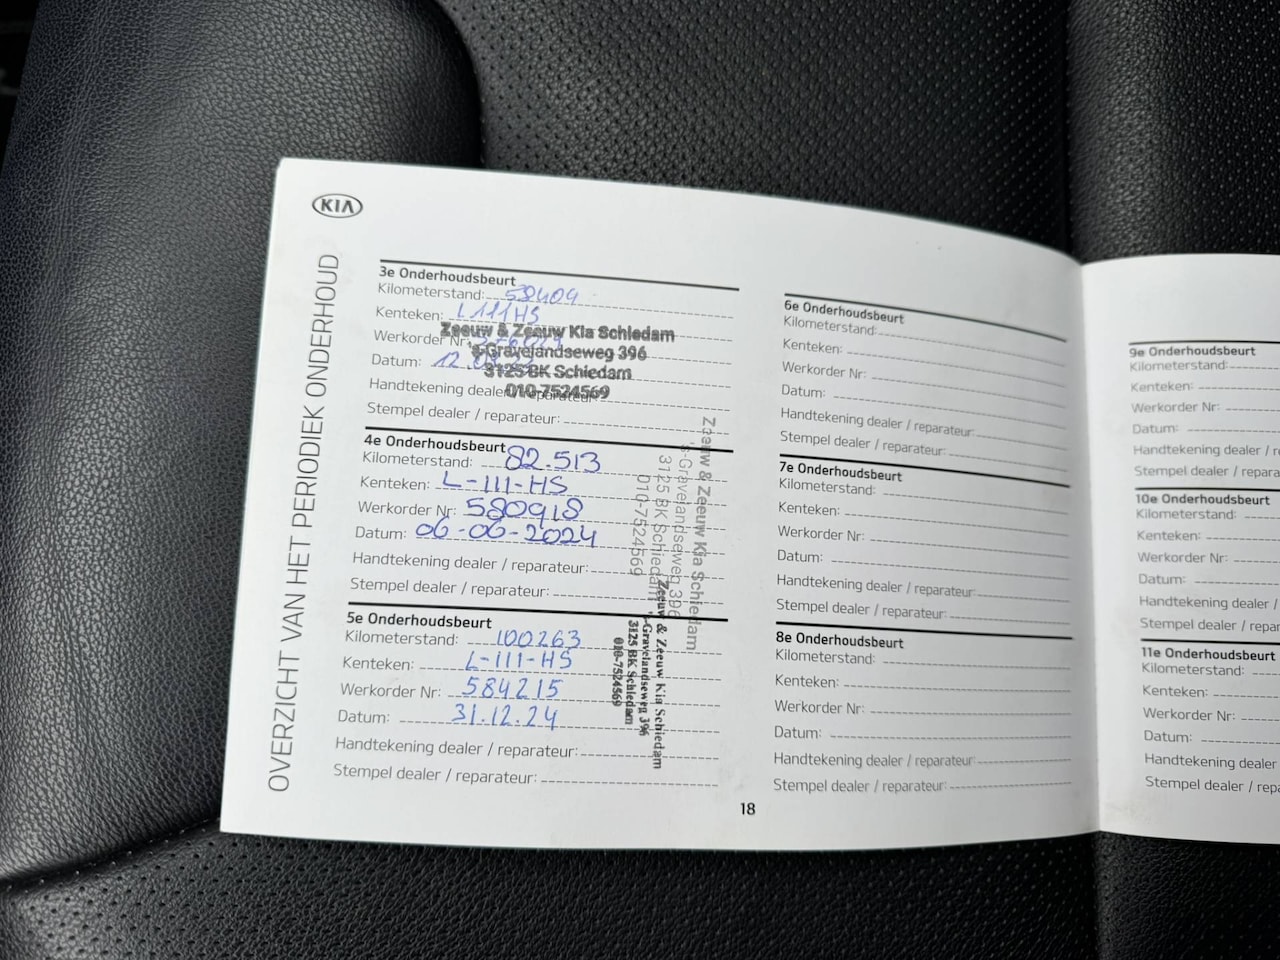 KIA
OVERZICHT VAN HET PERIODIEK ONDERHOUD
3e Onderhoudsbeurt
Kilometerstand: 58409
Kenteken: L111HS
Werkorder Nr:
Datum: 12.
Handtekening dealer / reparateur:
Stempel dealer / reparateur:
Zeeuw & Zeeuw Kia Schiedam
's-Gravelandseweg 396
3125 BK Schiedam
010-7524569
4e Onderhoudsbeurt
Kilometerstand: 82.513
Kenteken: L-111-HS
Werkorder Nr: 580918
Datum: 06-06-2024
Handtekening dealer / reparateur:
Stempel dealer / reparateur:
Zeeuw & Zeeuw Kia Schiedam
's-Gravelandseweg 396
3125 BK Schiedam
010-7524569
5e Onderhoudsbeurt
Kilometerstand: 100263
Kenteken: L-111-HS
Werkorder Nr: 584215
Datum: 31.12.24
Handtekening dealer / reparateur:
Stempel dealer / reparateur:
Zeeuw & Zeeuw Kia Schiedam
's-Gravelandseweg 396
3125 BK Schiedam
010-7524569
18
6e Onderhoudsbeurt
Kilometerstand:
Kenteken:
Werkorder Nr:
Datum:
Handtekening dealer / reparateur:
Stempel dealer / reparateur:
7e Onderhoudsbeurt
Kilometerstand:
Kenteken:
Werkorder Nr:
Datum:
Handtekening dealer / reparateur:
Stempel dealer / reparateur:
8e Onderhoudsbeurt
Kilometerstand:
Kenteken:
Werkorder Nr:
Datum:
Handtekening dealer / reparateur:
Stempel dealer / reparateur:
9e Onderhoudsbeurt
Kilometerstand:
Kenteken:
Werkorder Nr:
Datum:
Handtekening dealer /
Stempel dealer / repara
10e Onderhoudsbeurt
Kilometerstand:
Kenteken:
Werkorder Nr:
Datum:
Handtekening dealer /
Stempel dealer / repara
11e Onderhoudsbeurt
Kilometerstand:
Kenteken:
Werkorder Nr:
Datum:
Handtekening dealer
Stempel dealer / repa